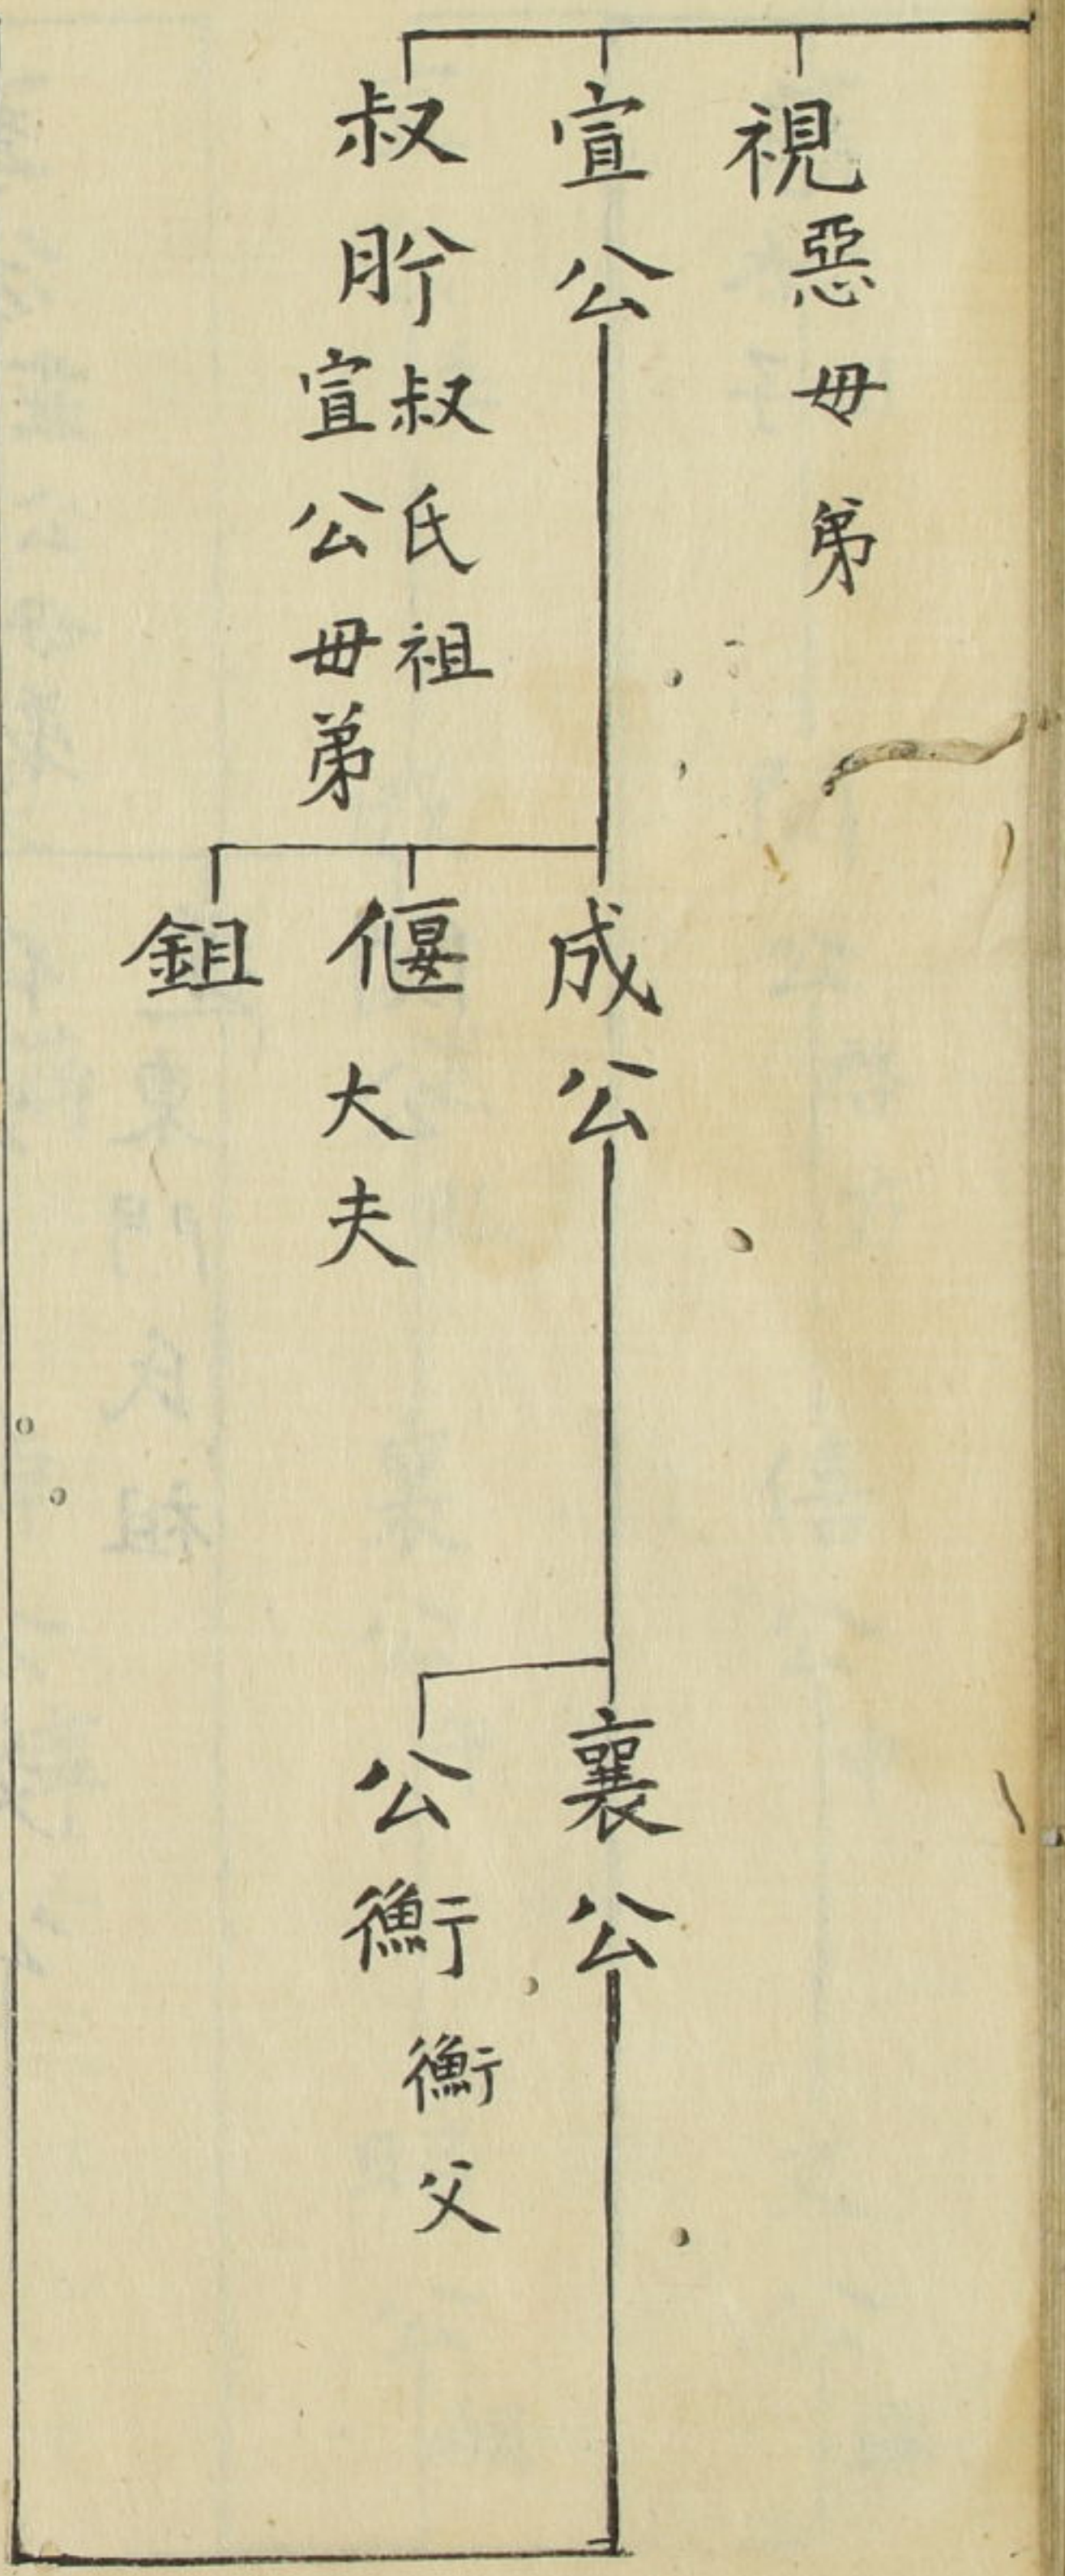 視惡毋弟
宣公
叔肸叔氏祖
宣公毋弟
成公
偃大夫
鉏
襄公
公衡衡父